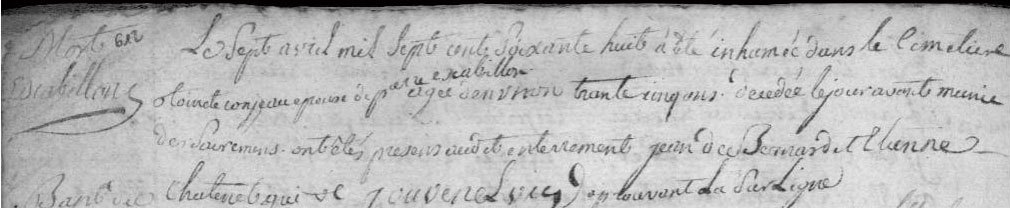 Mort
Escabillon
Le Sept avril mil Sept cents Soixante huit à été inhumée dans le Cimetiere
escabillon
epouse de pierre agée denviron trante cinq ans. decedée le jour avant munie
des Sacremens. ont étés presens audit enterrement jean de Bernard et Etienne
qui approuvant La Sur Ligne